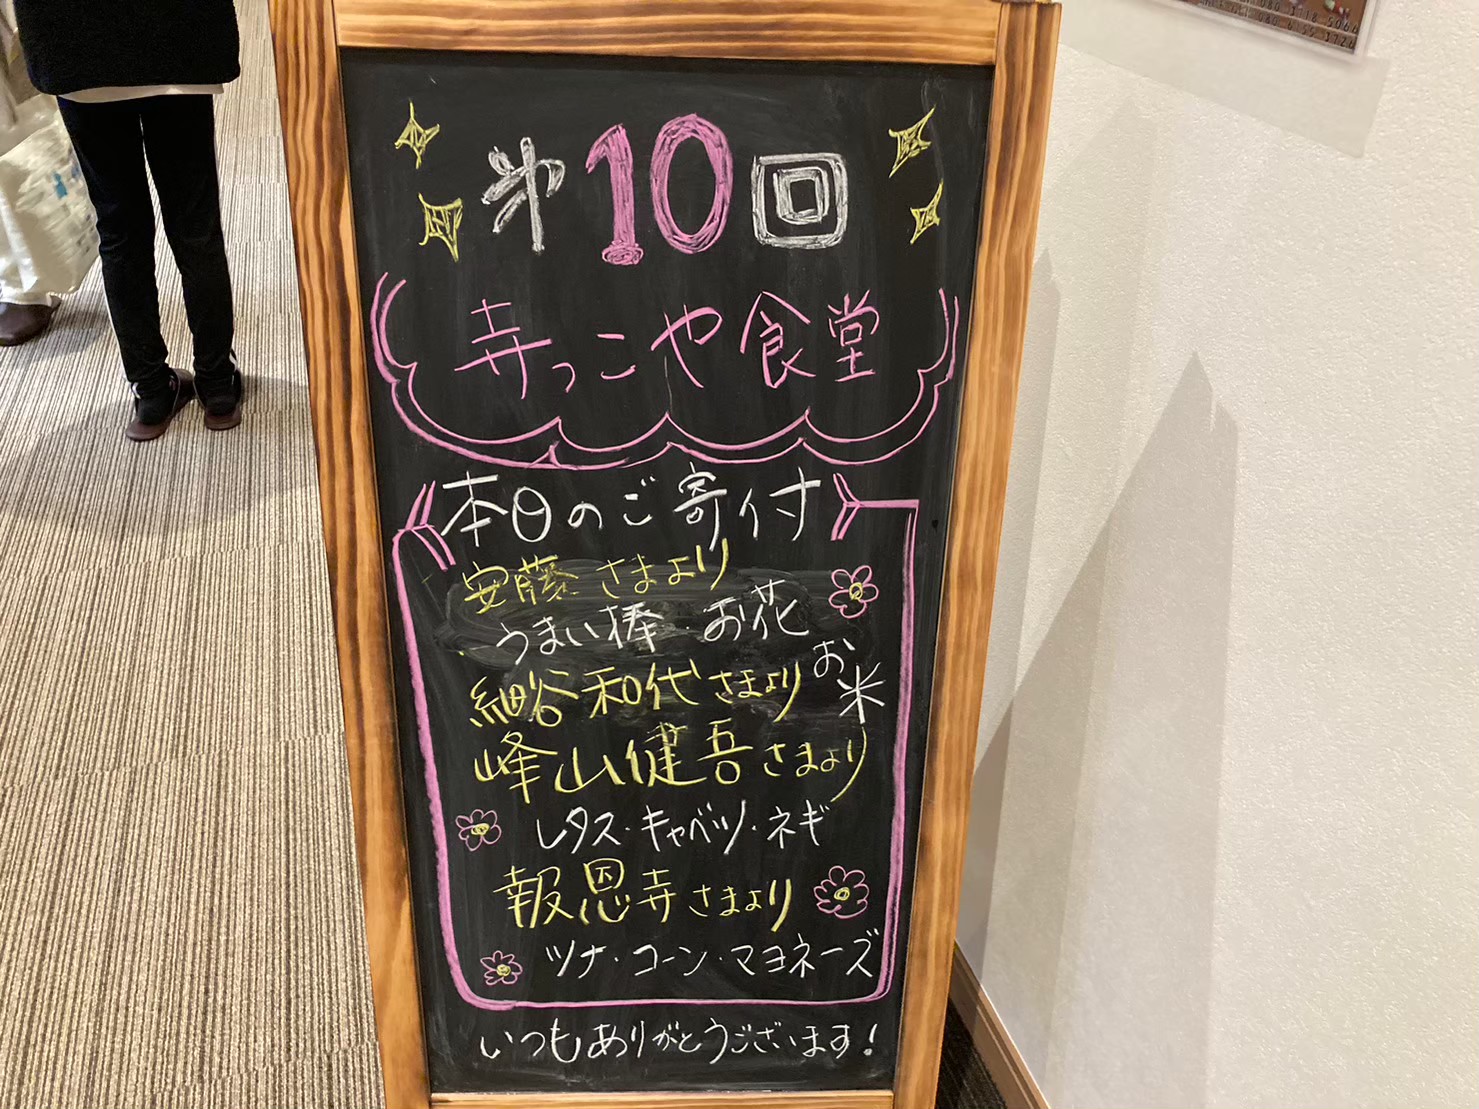 第10回
寺っこや食堂
本日のご寄付
安藤さまより
うまい棒・お花
細谷和代さまより お米
峰山健吾さまより
レタス・キャベツ・ネギ
報恩寺さまより
ツナ・コーン・マヨネーズ
いつもありがとうございます!